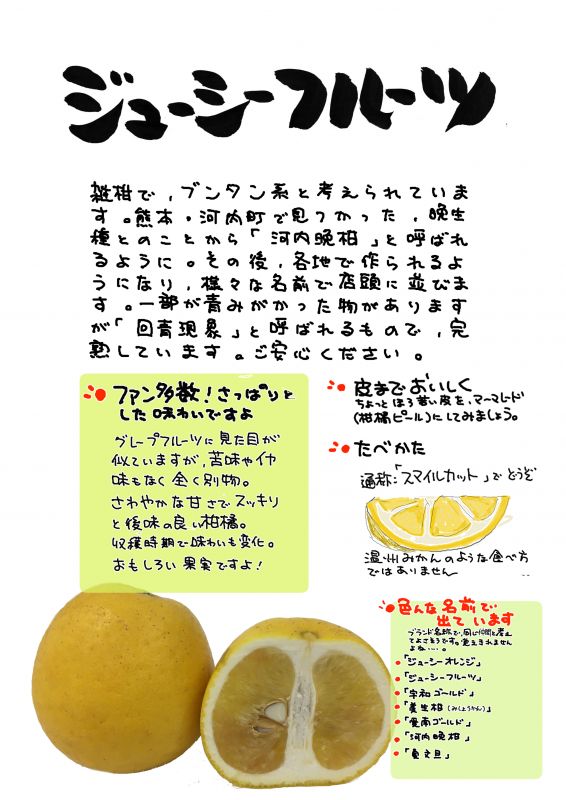 ジューシーフルーツ
雑柑で,ブンタン系と考えられていま
す。熊本・河内町で見つかった,晩生
種とのことから「河内晩柑」と呼ばれ
るように。その後,各地で作られるよ
うになり,様々な名前で店頭に並びま
す。一部が青みがかった物があります
が「回青現象」と呼ばれるもので,完
熟しています。ご安心ください。
ファン多数!さっぱりと
した味わいですよ
グレープフルーツに見た目が
似ていますが,苦味やイヤ
味もなく全く別物。
さわやかな甘さでスッキリ
と後味の良い柑橘。
収穫時期で味わいも変化。
おもしろい果実ですよ!
皮までおいしく
ちょっとほろ苦い皮を,マーマレード
(柑橘ピール)にしてみましょう。
たべかた
通称:「スマイルカット」でどうぞ
温州みかんのような食べ方
ではありません
色んな名前で
出ています
ブランド名称で,同じ仲間と考え
てよさそうです。覚えきれません
よね…。
「ジューシーオレンジ」
「ジューシーフルーツ」
「宇和ゴールド」
「美生柑(みしょうかん)」
「愛南ゴールド」
「河内晩柑」
「夏文旦」